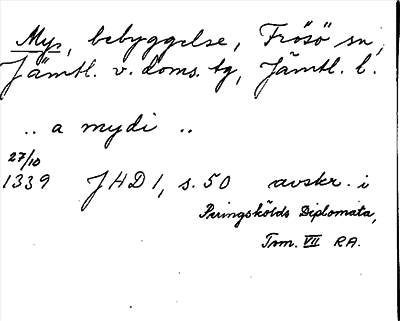 My, bebyggelse, Frösö sn,
Jämtl. v. doms. tg, Jämtl. l.
.. a mydi ..
27/10
1339 JHD 1, s. 50 avskr. i
Peringskölds Diplomata,
Tom. VII RA.